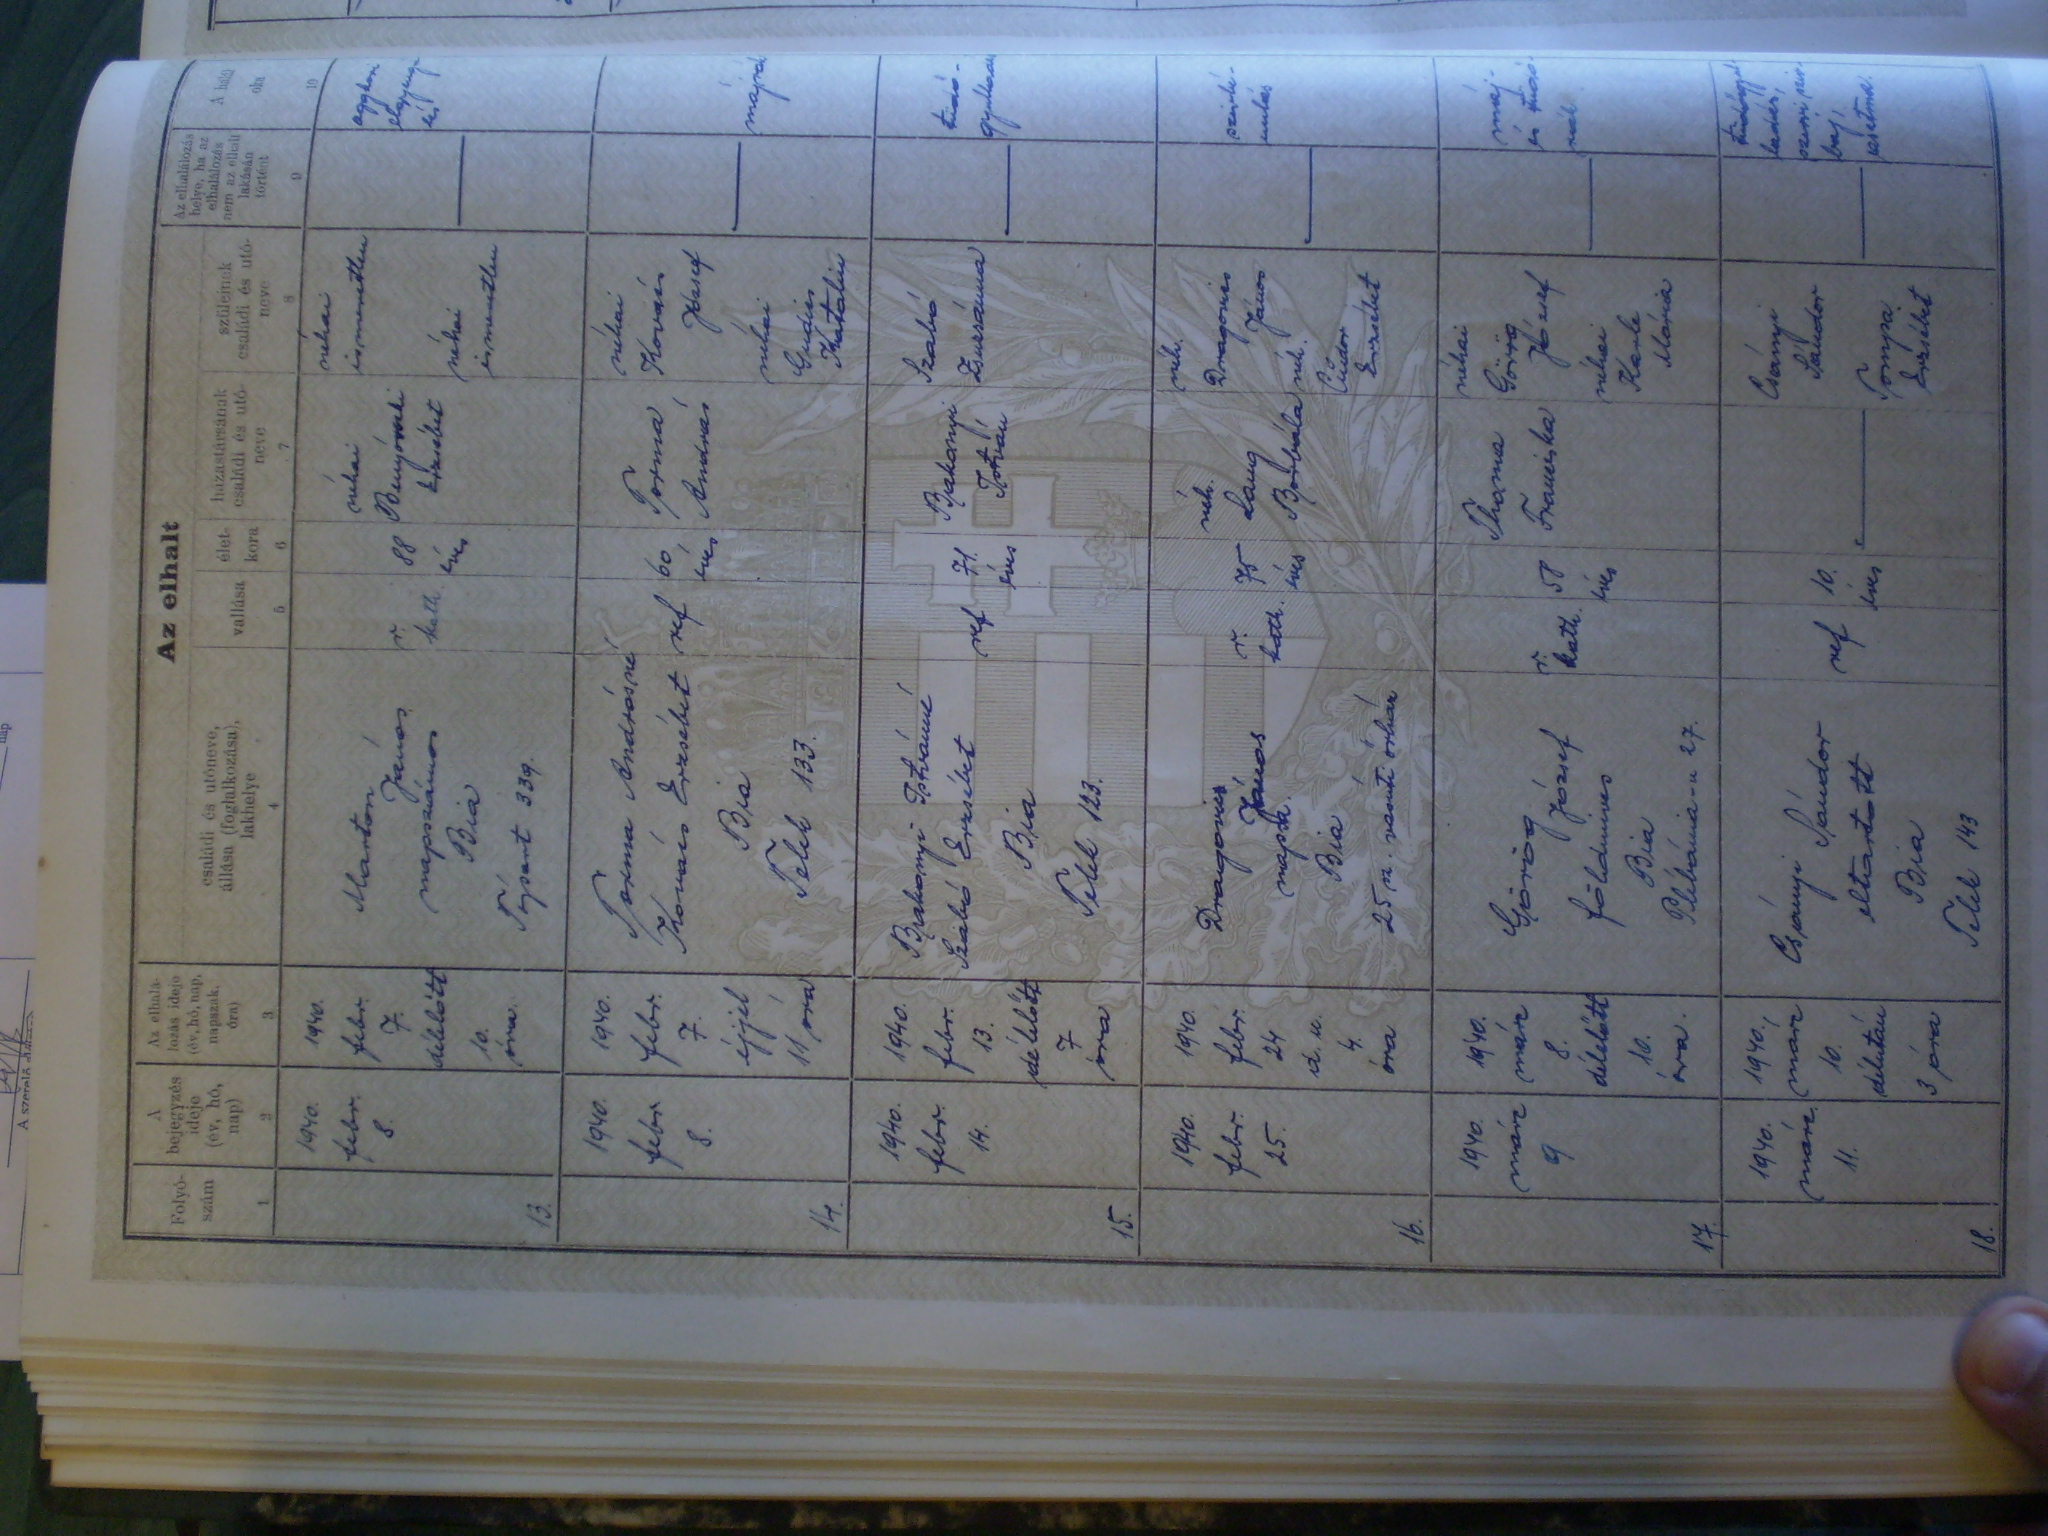 Az elhalt
Folyó-
szám
A
bejegyzés
ideje
(év, hó,
nap)
Az elhalá-
lozás ideje
(év, hó, nap,
napszak,
óra)
családi és utóneve,
állása (foglalkozása),
lakhelye
vallása
élet-
kora
házastársának
családi és utó-
neve
szüleinek
családi és utó-
neve
Az elhalálozás
helye, ha az
elhalálozás
nem az elhalt
lakásán
történt
A halál
oka
1
2
3
4
5
6
7
8
9
10
13.
1940.
febr.
8.
1940.
febr.
7.
délelőtt
10.
óra.
Marton
János
napszámos
Bia
339.
r.
kath.
88
éves
néhai
Erzsébet
néhai
ismeretlen
néhai
ismeretlen
aggkori
elgyengü-
lés
14.
1940.
febr
8.
1940.
febr.
7.
éjjel
11 óra
Torma Andrásné
Kovács Erzsébet
Bia
Telek 133.
ref
60
éves
Torma
András
néhai
Kovács
József
néhai
Katalin
májrák
15.
1940.
febr.
14.
1940.
febr.
13.
délelőtt
7
óra
Bakonyi Istvánné
Szabó Erzsébet
Bia
Telek 123.
ref
71.
éves
Bakonyi
István
Szabó
Zsuzsánna
tüdő-
gyulladás
16.
1940.
febr.
25.
1940.
febr.
24
d. u.
4.
óra
Dragonics
János
napsz.
Bia
25 sz. vasúti őrház
r.
kath.
75
éves
néh.
Lang
Borbála
néh.
Dragonics
János
néh.
Erzsébet
17.
1940.
márc
9
1940.
márc
8.
délelőtt
10.
óra.
Görög
József
földmíves
Bia
Plébánia-u 27.
r.
kath.
58
éves
Thoma
Franciska
néhai
Görög
József
néhai
Mária
máj-
és tüdő
rák.
18.
1940.
márc.
11.
1940.
márc
10.
délután
3 óra
Csányi
Sándor
eltartott
Bia
Telek 143
ref
10.
éves
Csányi
Sándor
Erzsébet